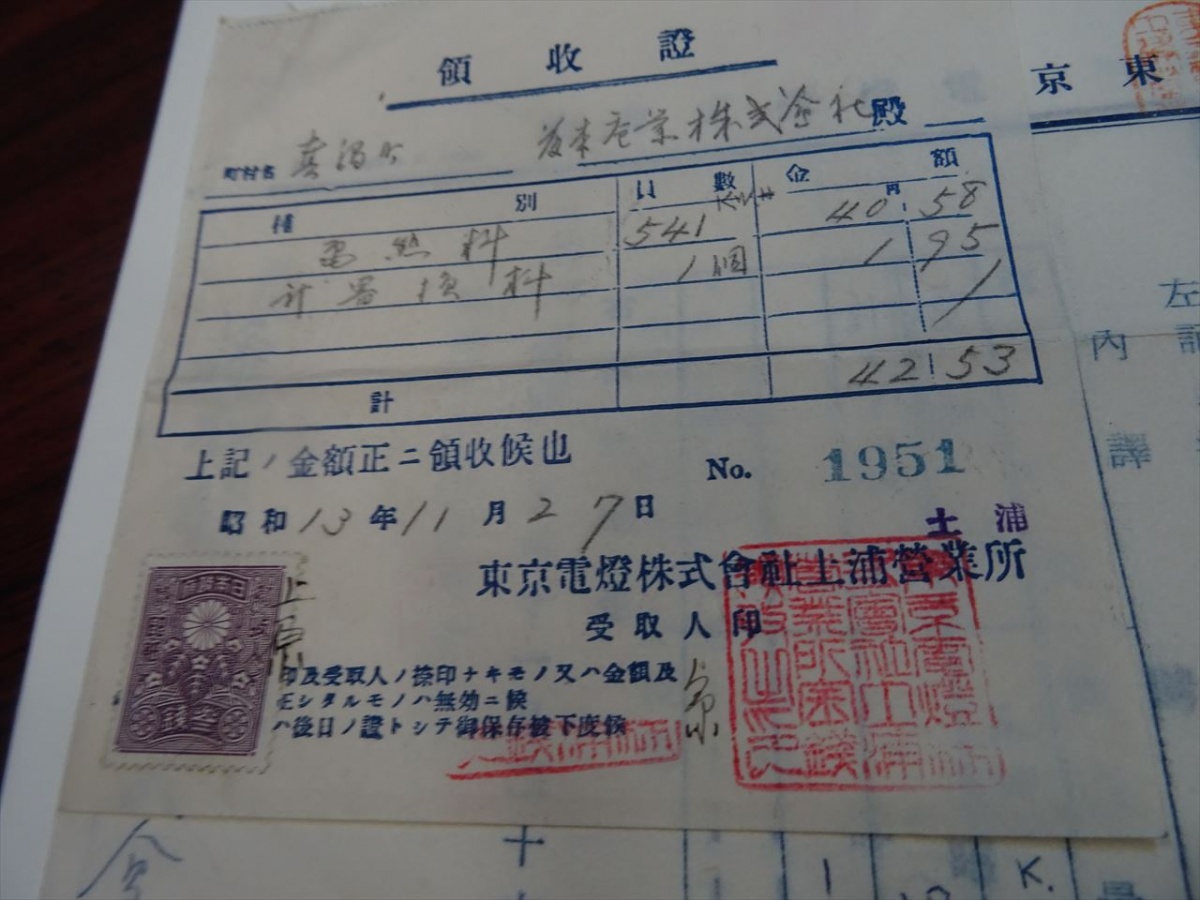 領收證
町村名 眞鍋町 產業株式會社 殿
種別 員數 金額
電熱料 541 キロ 40 円 58
計器損料 1個 1 95
計 42 53
上記ノ金額正ニ領收候也
No. 1951
昭和13年11月27日
土浦
東京電燈株式會社土浦營業所
受取人印
印及受取人ノ捺印ナキモノ又ハ金額及
正シタルモノハ無効ニ候
ハ後日ノ證トシテ御保存被下度候
上原
東京
左
內
譯
十
1
K.